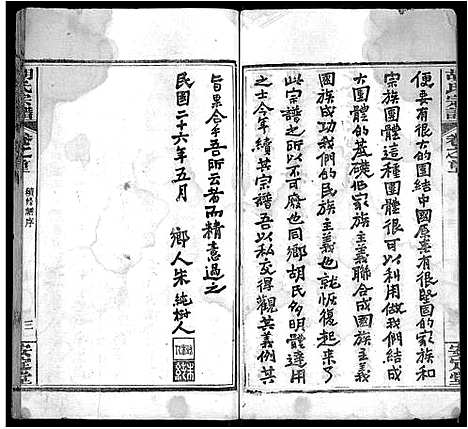 胡氏宗譜
卷之首
安定堂
便要有很大的團結中國原來有很堅固的家族和
宗族團體這種團體很可以利用做我們結成
大團體的基礎化家族主義聯合成國族主義
國族成功我們的民族主義也就恢復起來了
此宗譜之所以不可廢也同鄉胡氏多明體達用
之士今年續其宗譜吾以私交得觀其義例其
旨果合乎吾所云者而精意過之
民國二十六年五月　鄉人朱純樹人
胡氏宗譜
卷之首
續修譜序
三
安定堂